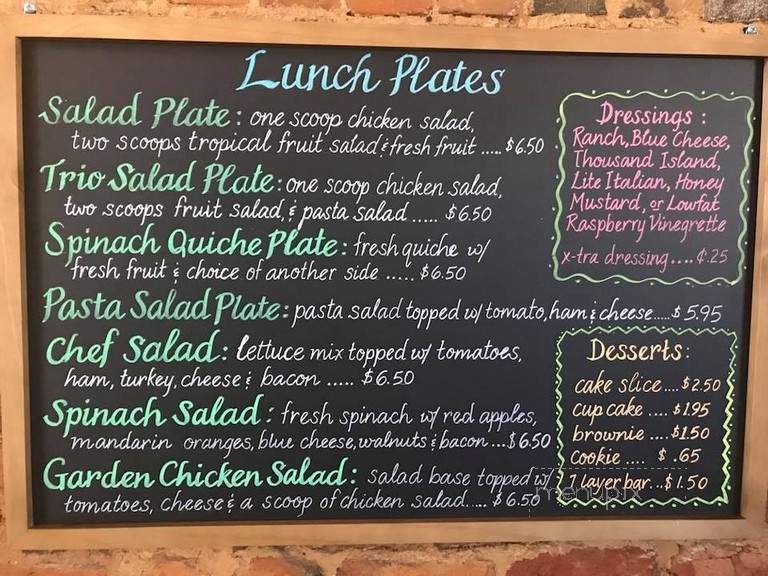 Lunch Plates
Salad Plate: one scoop chicken salad,
two scoops tropical fruit salad, & fresh fruit ..... $6.50
Trio Salad Plate: one scoop chicken salad,
two scoops fruit salad, & pasta salad ..... $6.50
Spinach Quiche Plate: fresh quiche w/
fresh fruit & choice of another side ..... $6.50
Pasta Salad Plate: pasta salad topped w/ tomato, ham & cheese ..... $5.95
Chef Salad: lettuce mix topped w/ tomatoes,
ham, turkey, cheese & bacon ..... $6.50
Spinach Salad: fresh spinach w/ red apples,
mandarin oranges, blue cheese, walnuts & bacon ... $6.50
Garden Chicken Salad: salad base topped w/
tomatoes, cheese & a scoop of chicken salad ..... $6.50
Dressings:
Ranch, Blue Cheese,
Thousand Island,
Lite Italian, Honey
Mustard, or Lowfat
Raspberry Vinegrette
x-tra dressing .... ¢.25
Desserts:
cake slice .... $2.50
cupcake .... $1.95
brownie .... $1.50
cookie .... $ .65
7 layer bar ... $1.50
menupix